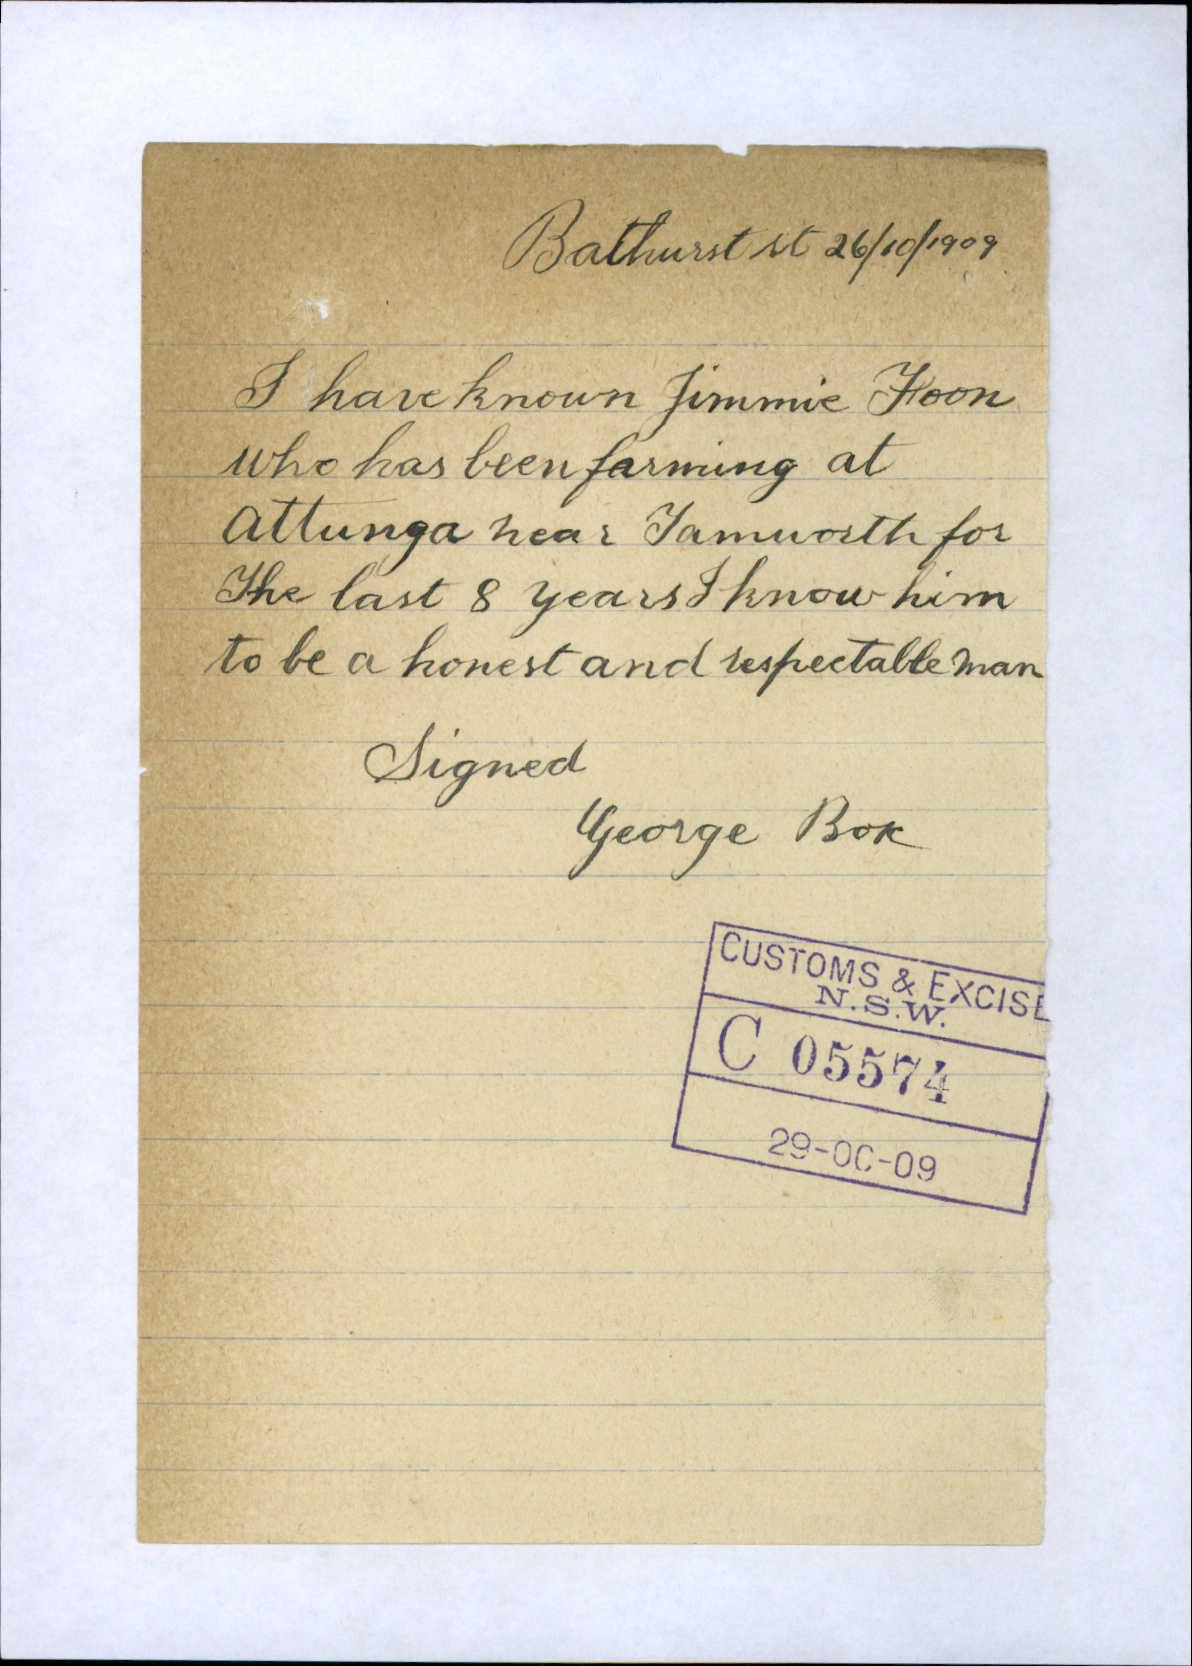 Bathurst st 26/10/1909
I have known Jimmie Foon
who has been farming at
Attunga near Tamworth for
The last 8 years I know him
to be a honest and respectable man
Signed
George Bok
CUSTOMS & EXCISE
N.S.W.
C 05574
29-OC-09